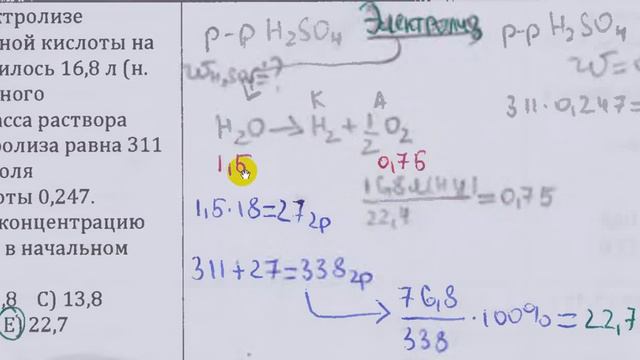 ктролизе
ной кислоты на
илось 16,8 л (н.
ного
сса раствора
ролиза равна 311
оля
оты 0,247.
концентрацию
в начальном
,8 C) 13,8
E) 22,7
р-р H₂SO₄ Электролиз
W H₂SO₄=?
K A
H₂O → H₂ + 1/2 O₂
1,5 0,75
16,8л(н.у)/22,4 = 0,75
1,5·18=27гр
311+27=338гр
76,8/338 ·100%=22,7
р-р H₂SO₄
W=0
311·0,247=